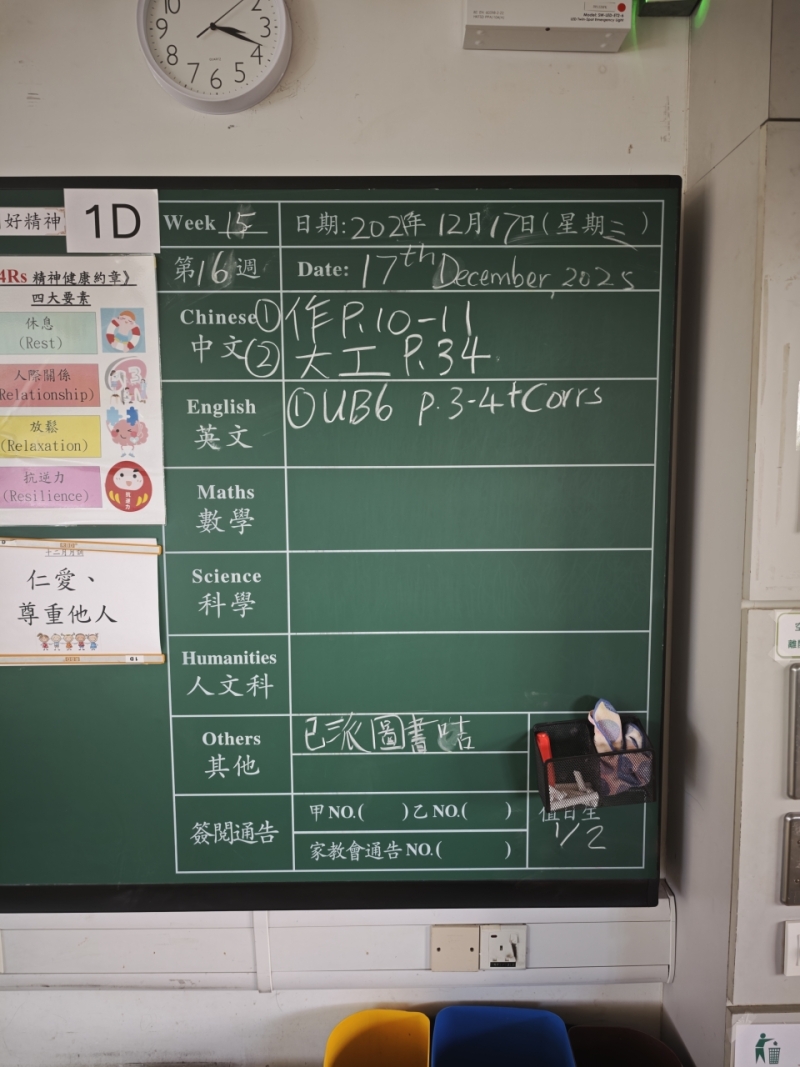 10 2
9 3
8 4
7 6 5
Model: SW-LED-ET2-A
LED Twin Spot Emergency Light
好精神
1D
Week 15
日期: 202 年 12月17日(星期三)
第16週
Date: 17th December, 2025
4Rs 精神健康約章》
四大要素
休息
(Rest)
人際關係
Relationship)
放鬆
(Relaxation)
抗逆力
(Resilience)
十二月月訓
仁愛、
尊重他人
Chinese ① 作 P.10-11
中文 ② 大工 P.34
English ① UB6 p.3-4+Corrs
英文
Maths
數學
Science
科學
Humanities
人文科
Others
其他
已派圖書咭
簽閱通告
甲NO.( )乙NO.( )
家教會通告NO.( )
值日生
1/2